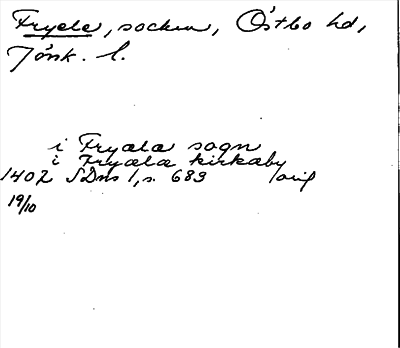 Fryele, socken, Östbo hd,
Jönk. l.
i Fryala sogn
i Fryala kirkaby
1402 SDns 1, s. 689 orig
19/10